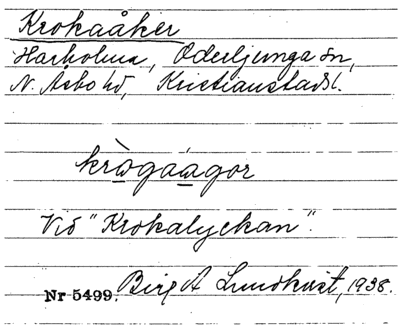 Krokaåker
Harholma, Oderljunga sn,
N. Åsbo hd, Kristianstads l.
krò̲ga á̲gor
Vid "Krokalyckan".
Nr 5499. Birg A Lundkvist, 1938.